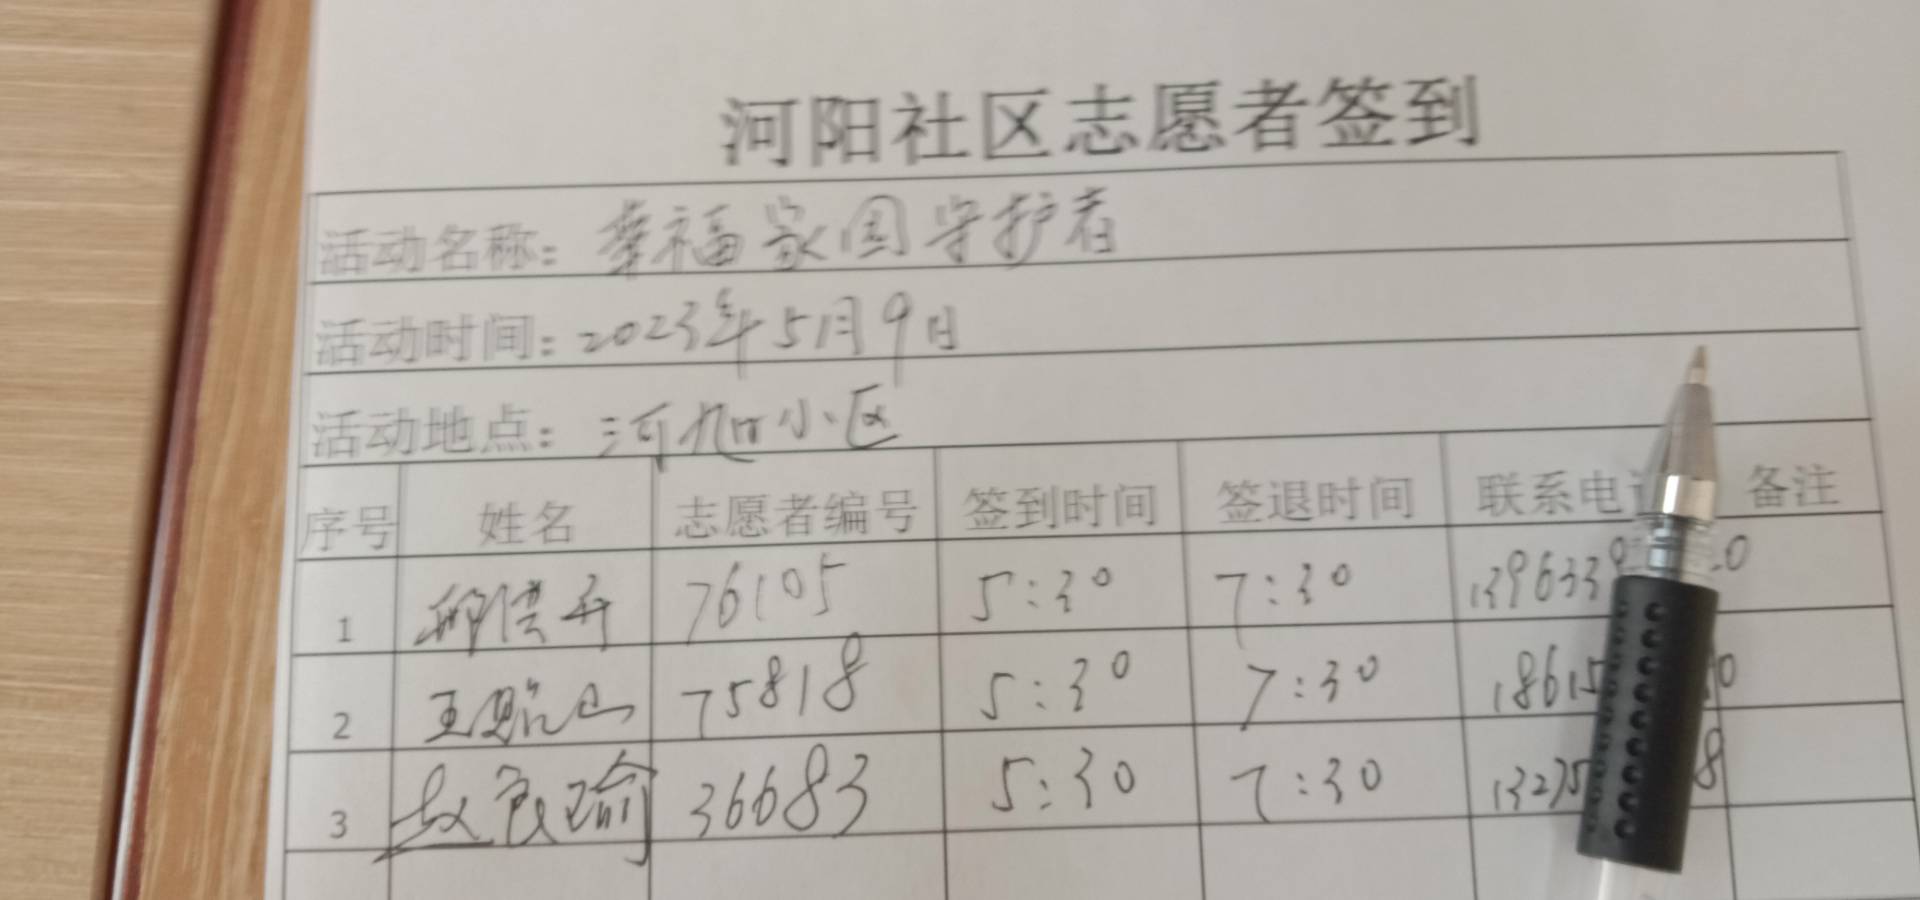 河阳社区志愿者签到
活动名称：幸福家园守护者
活动时间：2023年5月9日
活动地点：河旭小区
序号 姓名 志愿者编号 签到时间 签退时间 联系电 备注
1 76105 5:30 7:30 139633
2 王 山 75818 5:30 7:30 18615
3 赵良瑜 36683 5:30 7:30 13275 8